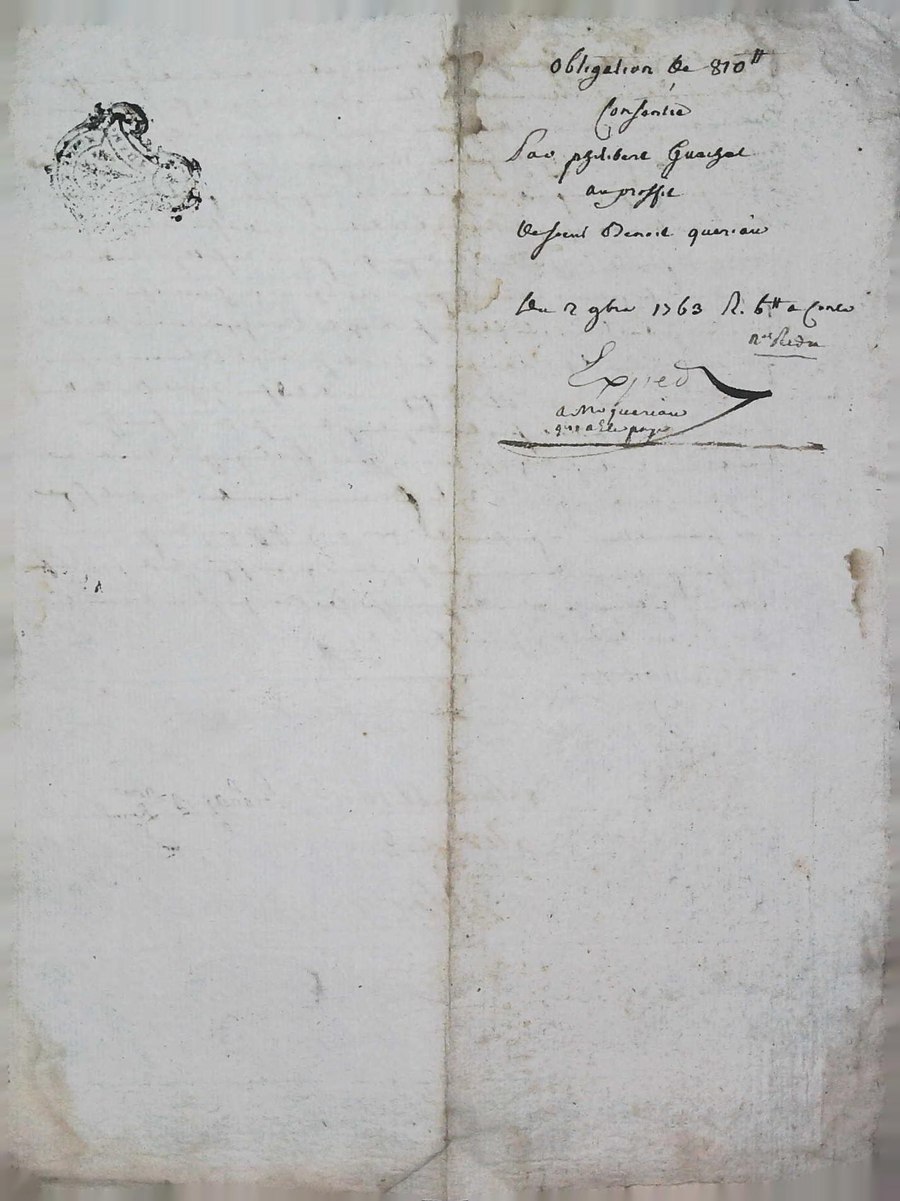 Obligation de 810ᵗᵗ
Consentie
Par philibert Guechet
au proffit
de sieur Benoit queriau
Du 2 9bre 1763 R. 6ᵗᵗ a
Exped
a Mr queriau
qui a